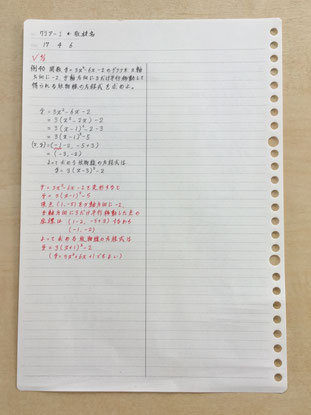 17 4 6
例40 関数 y=3x²-6x-2のグラフをx軸
方向に-2、y軸方向に3だけ平行移動して
得られる放物線の方程式を求めよ。
y=3x²-6x-2
=3(x²-2x)-2
=3(x-1)²-2-3
=3(x-1)²-5
=(-3,-2)
よって求める放物線の方程式は
y=3(x-3)²-2
y=3x²-6x-2を変形すると
y=3(x-1)²-5
頂点(1,-5)をx軸方向に-2、
y軸方向に3だけ平行移動した点の
座標は(1-2,-5+3)すなわち
(-1,-2)
よって求める放物線の方程式は
y=3(x+1)²-2
(y=3x²+6x+1でもよい)